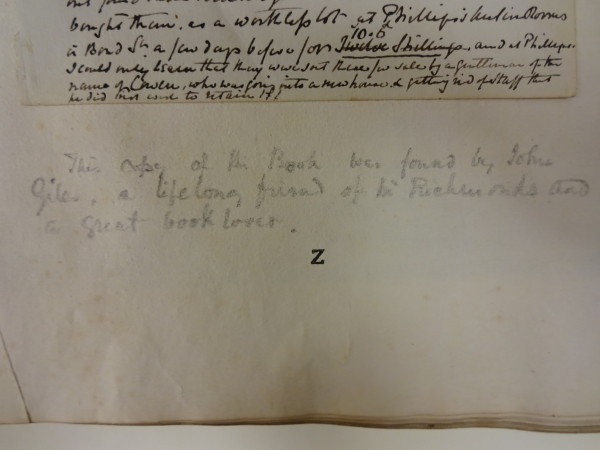 bought them, as a worthless lot, at Phillips's Auction Rooms
10.6
in Bond St. a few days before for Twelve Shillings, and at Phillips.
I could only learn that they were sent there for sale by a gentleman of the
name of Cowen, who was going into a new house & getting rid of stuff that
he did not want to retain
This copy of the Book was found by John
Giles, a lifelong friend of the Richmonds and
a great book lover.
Z